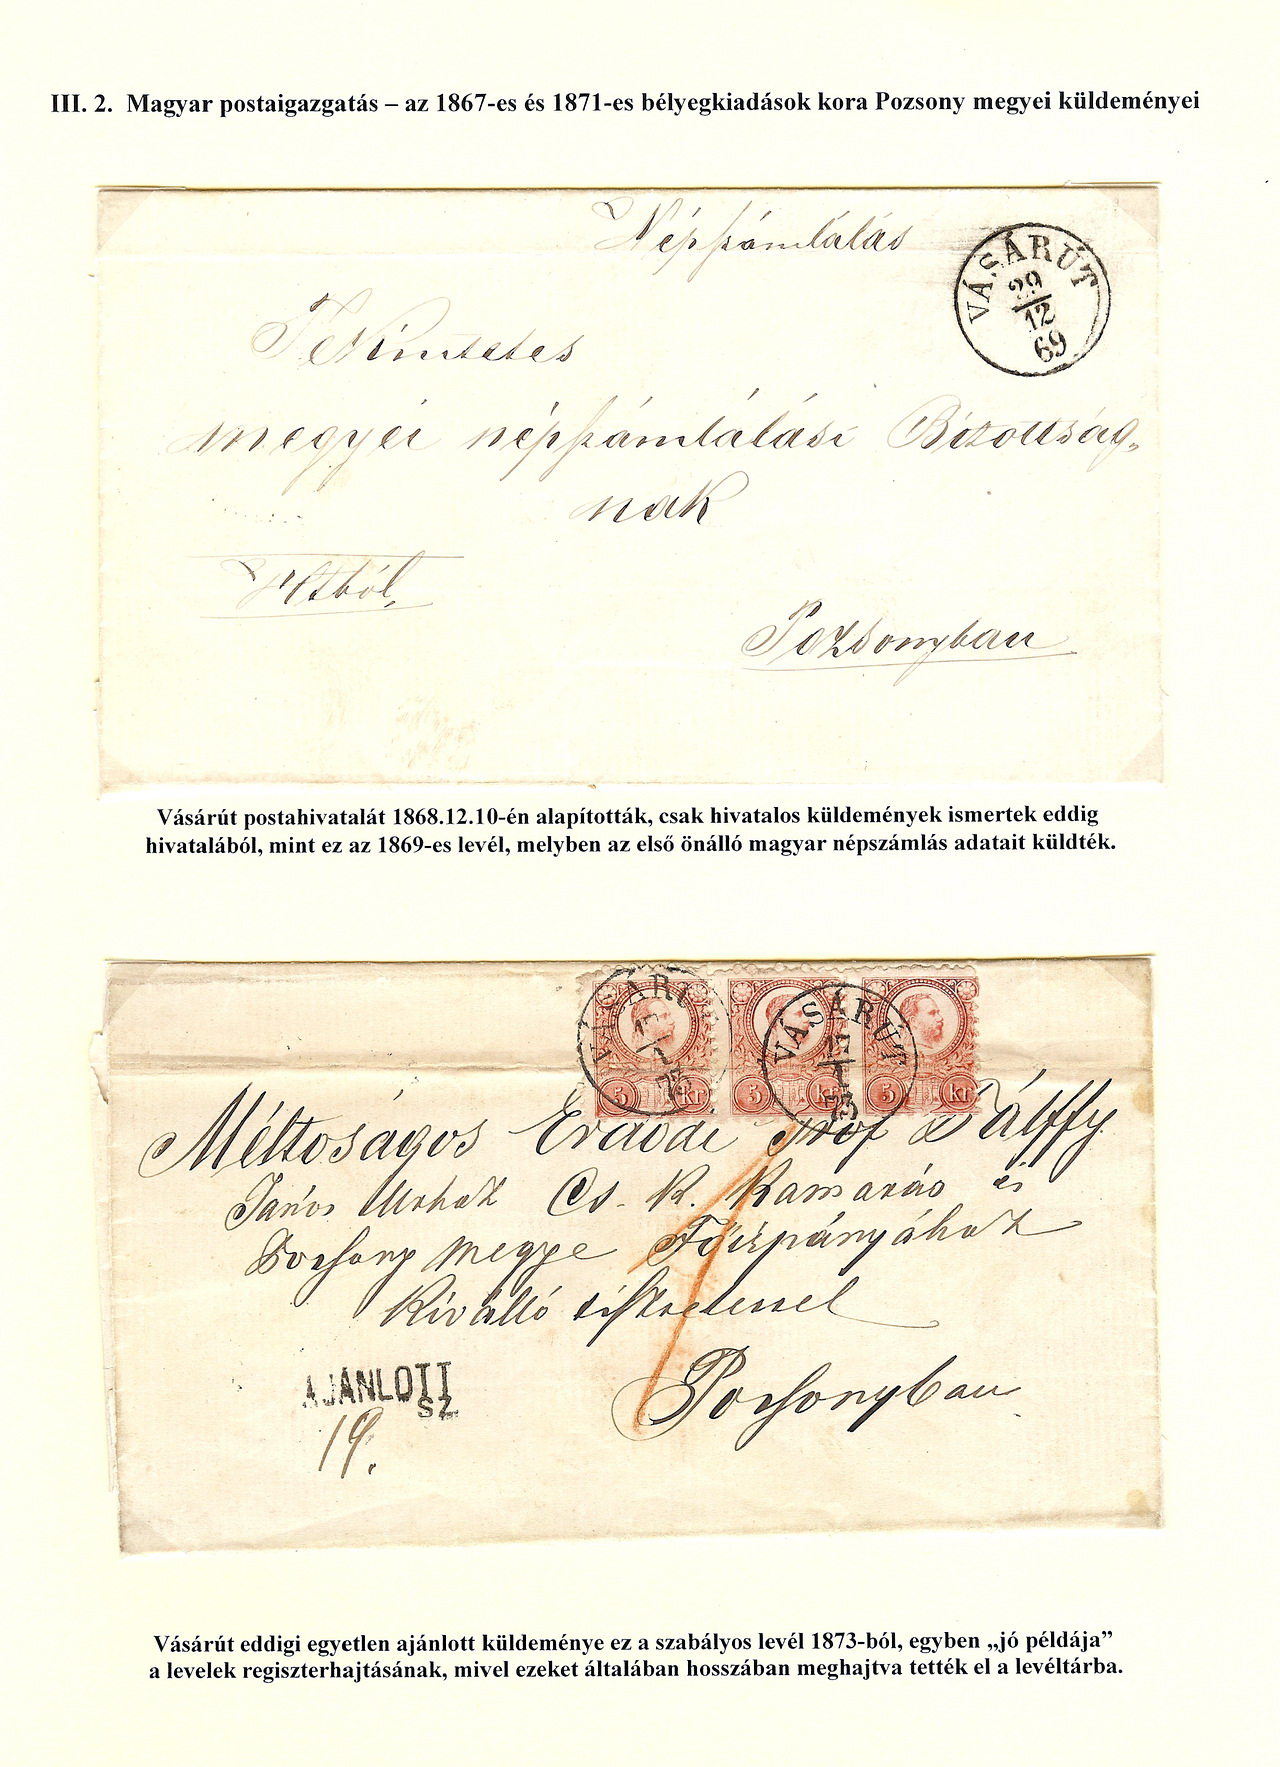 III. 2. Magyar postaigazgatás – az 1867-es és 1871-es bélyegkiadások kora Pozsony megyei küldeményei
Népszámlálás
VÁSÁRÚT
29
12
69
Tekintetes
megyei népszámlálási Bizottság-
nak
Pozsonyban
Vásárút postahivatalát 1868.12.10-én alapították, csak hivatalos küldemények ismertek eddig
hivatalából, mint ez az 1869-es levél, melyben az első önálló magyar népszámlás adatait küldték.
VÁSÁRÚT
VÁSÁRÚT
17
1
73
5 kr
5 kr
5 kr
Méltoságos Erdődi Gróf Pálffy
János Urnak Cs. K. Kamarás és
Posony megye Főispányának
Kiválló tisztelettel
Posonyban
AJÁNLOTT
SZ
19.
Vásárút eddigi egyetlen ajánlott küldeménye ez a szabályos levél 1873-ból, egyben „jó példája”
a levelek regiszterhajtásának, mivel ezeket általában hosszában meghajtva tették el a levéltárba.